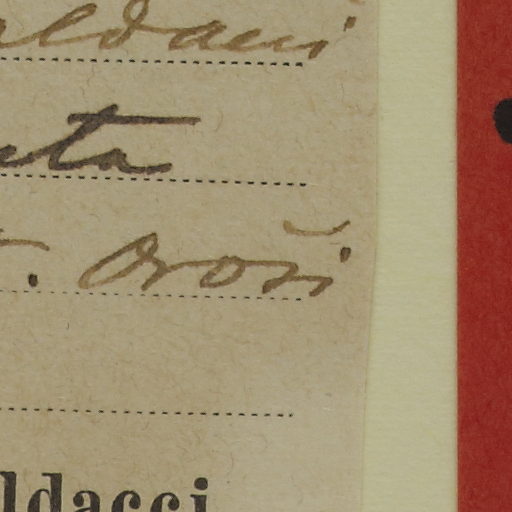 aldacii
uta
. Oroši
ldacci